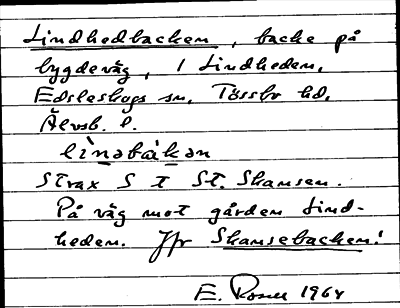 Lindhedbacken, backe på
bygdeväg, i Lindheden,
Edsleskogs sn, Tössbo hd,
Älvsb. l.
lìnəbàkən
Strax S t St. Skansen.
På väg mot gården Lind-
heden. Jfr Skansebacken!
E. 1964